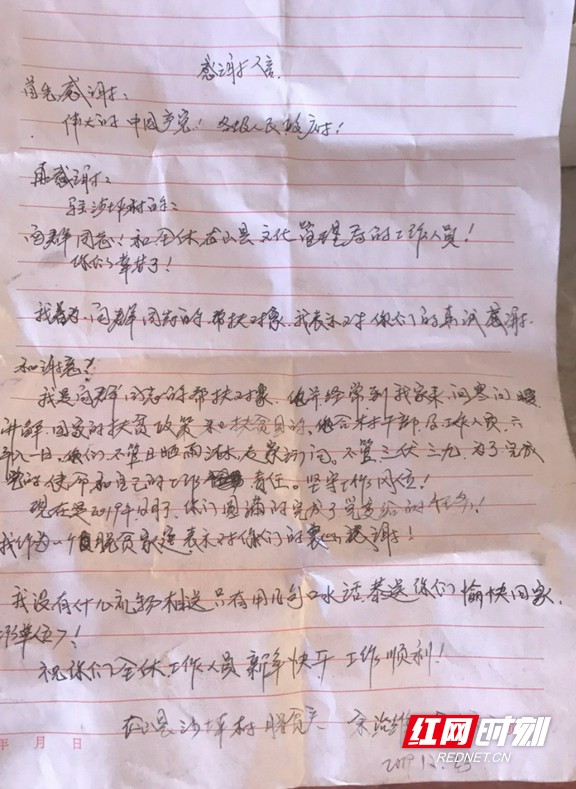 感谢信.
首先感谢:
伟大的中国共产党! 各级人民政府!
再感谢:
驻沙坪村的:
同志! 和全体 山县文化管理 的工作人员!
你们辛苦了!
我 同志的帮扶对象. 我表示对你们的真诚感谢.
和谢意!
我是 同志的帮扶对象. 他 经常到我家来. 问寒问暖
讲解国家的扶贫政策和扶贫目的. 他 村干部及工作人员. 六
年如一日. 你们不管日晒雨淋 家 . 不管三伏三九. 为了完成
党的使命和自己的工作 责任. 坚守工作岗位!
现在是2019年12月了. 你们圆满的完成了党交给的任务!
我作为一个脱贫家 表示对你们的衷心感谢!
我没有什么礼物相送 只有用几句口水话恭送你们愉快回家.
单位了!
祝你们全体工作人员新年快乐 工作顺利!
山县沙坪村脱贫户
年 月 日
2019.12.
红网时刻
REDNET.CN